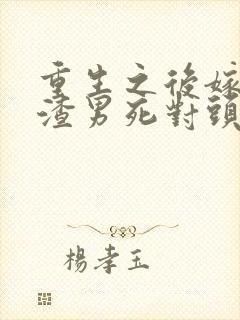 重生之後嫁
渣男死對頭
楊孝玉